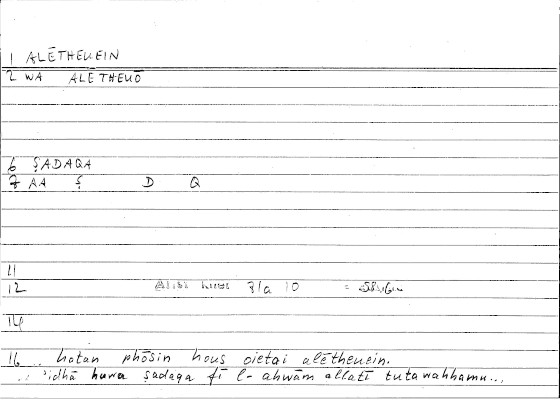 1 ALĒTHEUEIN
2 WA ALĒTHEUŌ
6 ṢADAQA
7 AA Ṣ D Q
11
12 31a 10 =
14
16 .. hotan phōsin hous oietai alētheuein.
.. 'idhā huwa ṣadaqa fī l-ahwām allatī tutawahhamu...